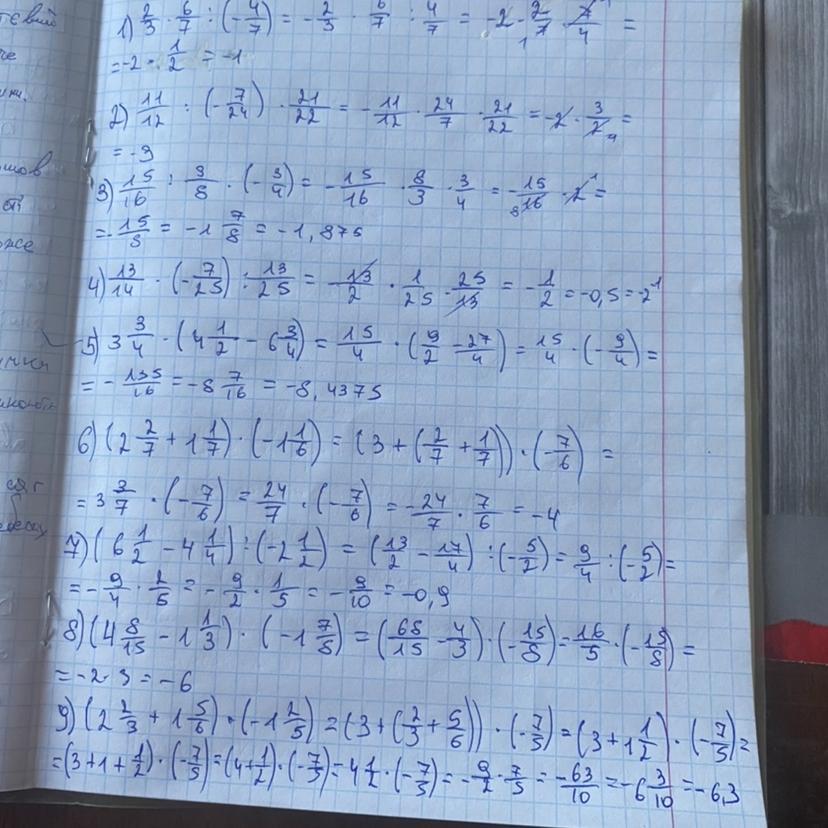 1) 2/3 · 6/7 : (-4/7) = -2/3 · 6/7 : 4/7 = -2 · 2/7 · 7/4 =
= -2 · 1/2 = -1
2) 11/12 : (-7/24) · 21/22 = -11/12 · 24/7 · 21/22 = -2 · 3/2 =
= -3
3) 15/16 : 3/8 · (-3/4) = -15/16 · 8/3 · 3/4 = -15/16 · 2 =
= -15/8 = -1 7/8 = -1,875
4) 13/14 · (-7/25) : 13/25 = -13/2 · 1/25 · 25/13 = -1/2 = -0,5 = -2^-1
5) 3 3/4 · (4 1/2 - 6 3/4) = 15/4 · (9/2 - 27/4) = 15/4 · (-9/4) =
= -135/16 = -8 7/16 = -8,4375
6) (2 2/7 + 1 1/7) · (-1 1/6) = (3 + (2/7 + 1/7)) · (-7/6) =
= 3 3/7 · (-7/6) = 24/7 · (-7/6) = -24/7 · 7/6 = -4
7) (6 1/2 - 4 1/4) : (-2 1/2) = (13/2 - 17/4) : (-5/2) = 9/4 : (-5/2) =
= -9/4 · 2/5 = -9/2 · 1/5 = -9/10 = -0,9
8) (4 8/15 - 1 1/3) · (-1 7/8) = (68/15 - 4/3) · (-15/8) = 16/5 · (-15/8) =
= -2·3 = -6
9) (2 2/3 + 1 5/6) · (-1 2/5) = (3 + (2/3 + 5/6)) · (-7/5) = (3 + 1 1/2) · (-7/5) =
= (3+1+1/2) · (-7/5) = (4+1/2) · (-7/5) = 4 1/2 · (-7/5) = -9/2 · 7/5 = -63/10 = -6 3/10 = -6,3